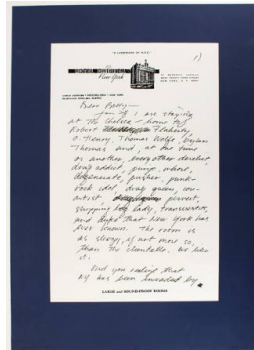 1)
HOTEL CHELSEA
New York
Dear Betty—
Jan & I are staying
at The Chelsea — home of
Robert Flaherty,
O. Henry, Thomas Wolfe, Dylan
Thomas and, at one time
or another, every other derelict,
drug addict, pimp, whore,
degenerate, pusher, punk-
rock idol, drag queen, con-
artist, pervert,
shopping bag lady, transvestite,
and dupe that New York has
ever known. The room is
as sleazy, if not more so,
than the clientele. We like
it.
And you realize that
NY has been invaded by
LARGE and SOUND-PROOF ROOMS